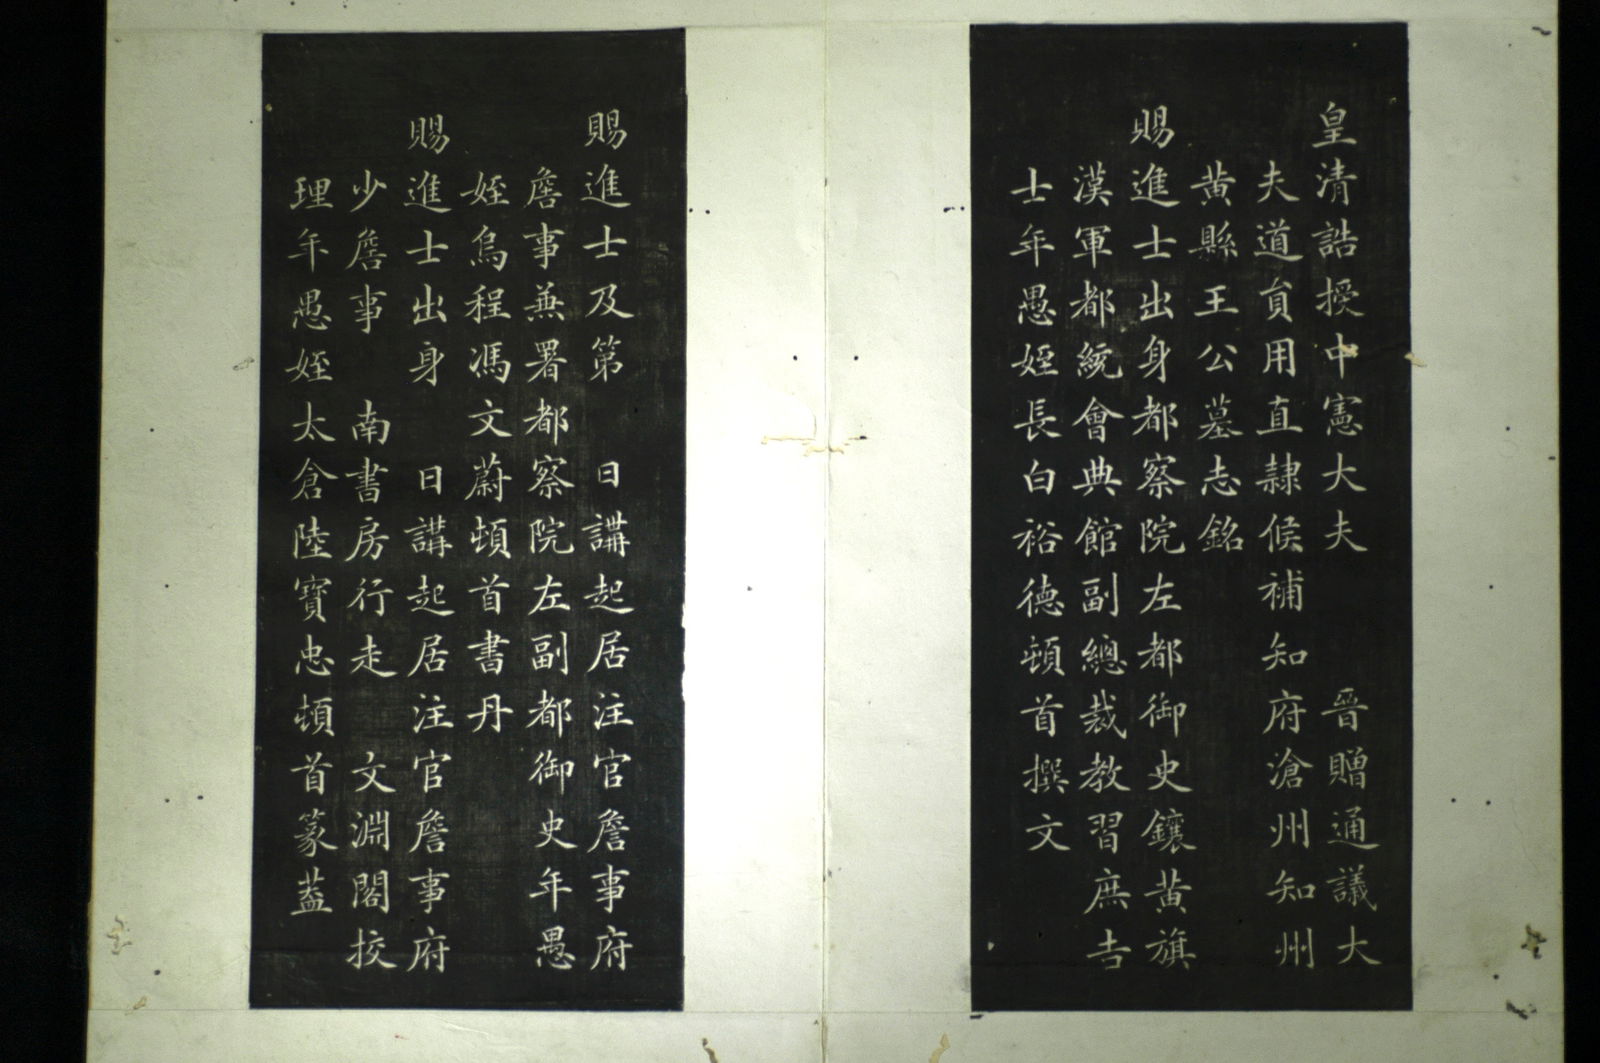 皇清誥授中憲大夫　晉贈通議大
夫道員用直隸候補知府滄州知州
黃縣王公墓志銘
賜進士出身都察院左都御史鑲黃旗
漢軍都統會典館副總裁教習庶吉
士年愚姪長白裕德頓首撰文
賜進士及第　日講起居注官詹事府
詹事兼署都察院左副都御史年愚
姪烏程馮文蔚頓首書丹
賜進士出身　日講起居注官詹事府
少詹事　南書房行走　文淵閣挍
理年愚姪太倉陸寶忠頓首篆蓋